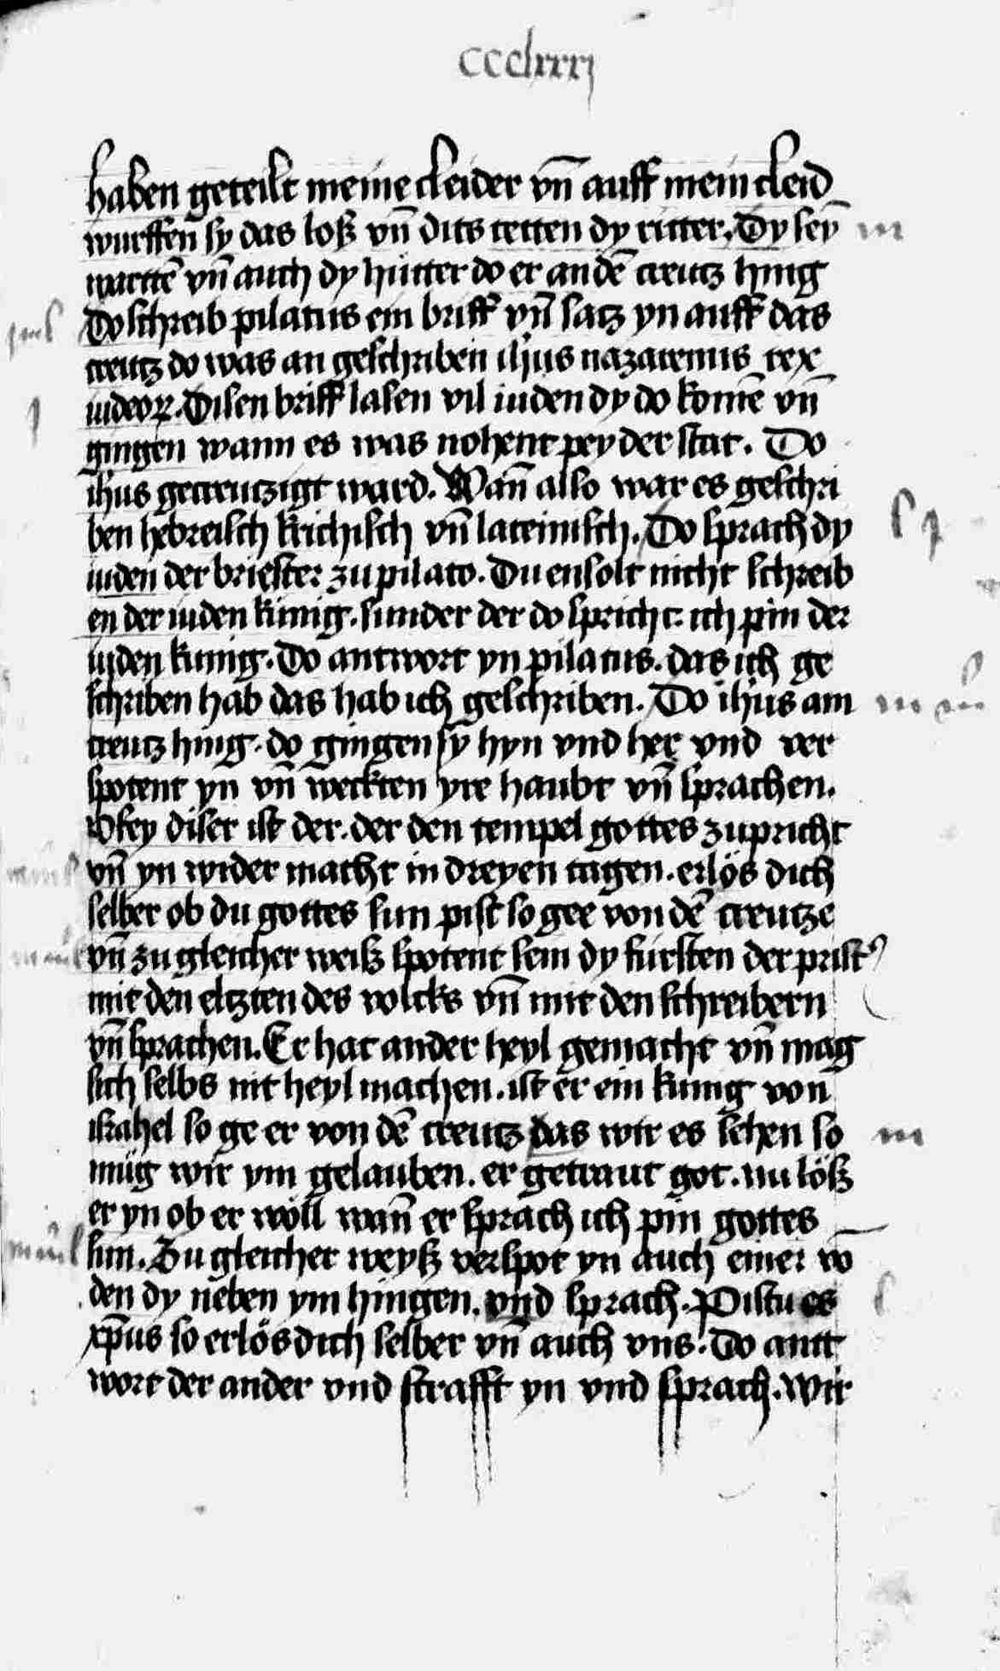 ccclxxxj
haben geteilt meine cleider vñ auff mein cleid
wurffen sy das loß vñ dits tetten dy ritter. Dy sey̅
wartte̅ vñ auch dy hutter do er an de̅ creutz hing
Do schreib pilatus ein briff vñ satz yn auff das
creutz do was an geschriben ihus nazarenus rex
iudeoꝝ. Disen briff lasen vil iuden dy do kome̅ vñ
gingen wann es was nohent pey der stat. Do
ihus gecreutzigt ward. Wan̅ also war es geschri
ben hebreisch krichisch vñ lateinisch. Do sprach dy
iuden der briester zu pilato. Du ensolt nicht schreib
en der iuden künig. sunder der do spricht ich pin der
iuden kunig. Do antwort yn pilatus. das ich ge
schriben hab das hab ich geschriben. Do ihus am
creutz hing. do gingen sy hyn vnd her vnd ver
spotent yn vñ weckten yre haubt vñ sprachen.
Wey diser ist der. der den tempel gottes zupricht
vñ yn wider macht in dreyen tagen. erlös dich
selber ob du gottes sun pist so gee von de̅ creutze
vñ zu gleicher weiß spotent sein dy fürsten der prist᾽
mit den eltzten des volcks vñ mit den schreibern
vñ sprachen. Er hat ander heyl gemacht vñ mag
sich selbs nit heyl machen. ist er ein kunig von
israhel so ge er von de̅ creutz das wir es sehen so
müg wir ym gelauben. er getraut got. nu löß
er yn ob er wöll wan̅ er sprach ich pin gottes
sun. Zu gleicher weyß verspot yn auch einer vo̅
den dy neben ym hingen. vnd sprach. Pistu es
xp̅us so erlös dich selber vñ auch vns. Do ant
wort der ander vnd strafft yn vnd sprach. Wir